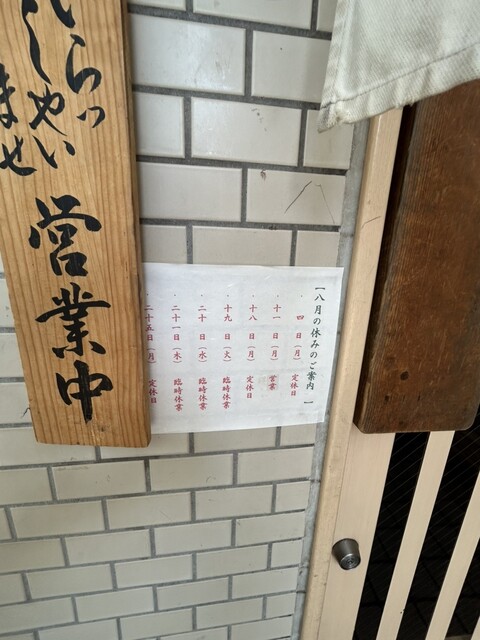 らっ
しやい
ませ
営業中
【八月の休みのご案内 】
・ 四 日(月) 定休日
・十一 日(月) 営業
・十八 日(月) 定休日
・十九 日(火) 臨時休業
・二十 日(水) 臨時休業
・二十一日(木) 臨時休業
・二十五日(月) 定休日